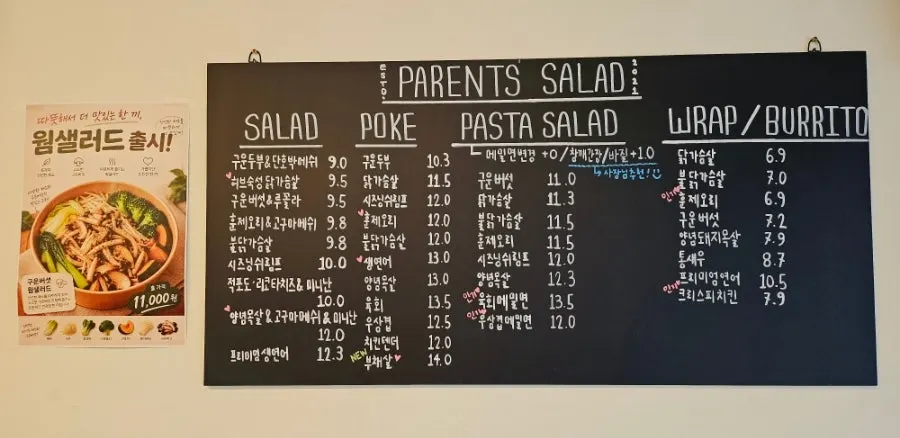 따뜻해서 더 맛있는 한 끼,
웜샐러드 출시!
구운버섯
웜샐러드
11,000원
ESTD.
PARENTS' SALAD
2021
SALAD
구운두부&단호박메쉬 9.0
허브숙성 닭가슴살 9.5
구운버섯&루꼴라 9.5
훈제오리&고구마메쉬 9.8
불닭가슴살 9.8
시즈닝쉬림프 10.0
적포도·리코타치즈&미니난
10.0
양념목살&고구마메쉬&미니난
12.0
프리미엄생연어 12.3
POKE
구운두부 10.3
닭가슴살 11.5
시즈닝쉬림프 12.0
훈제오리 12.0
불닭가슴살 12.0
생연어 13.0
양념목산 13.0
육회 13.5
우삼겹 12.5
치킨텐더 12.0
NEW 부채살 14.0
PASTA SALAD
메밀면변경 +0/참깨간장/바질+1.0
사장님추천!
구운버섯 11.0
닭가슴살 11.3
불닭가슴살 11.5
훈제오리 11.5
시즈닝쉬림프 12.0
양념목살 12.3
인기 육회메밀면 13.5
인기 우삼겹메밀면 12.0
WRAP / BURRITO
닭가슴살 6.9
불닭가슴살 7.0
인기 훈제오리 6.9
구운버섯 7.2
양념돼지목살 7.9
통새우 8.7
프리미엄연어 10.5
인기 크리스피치킨 7.9